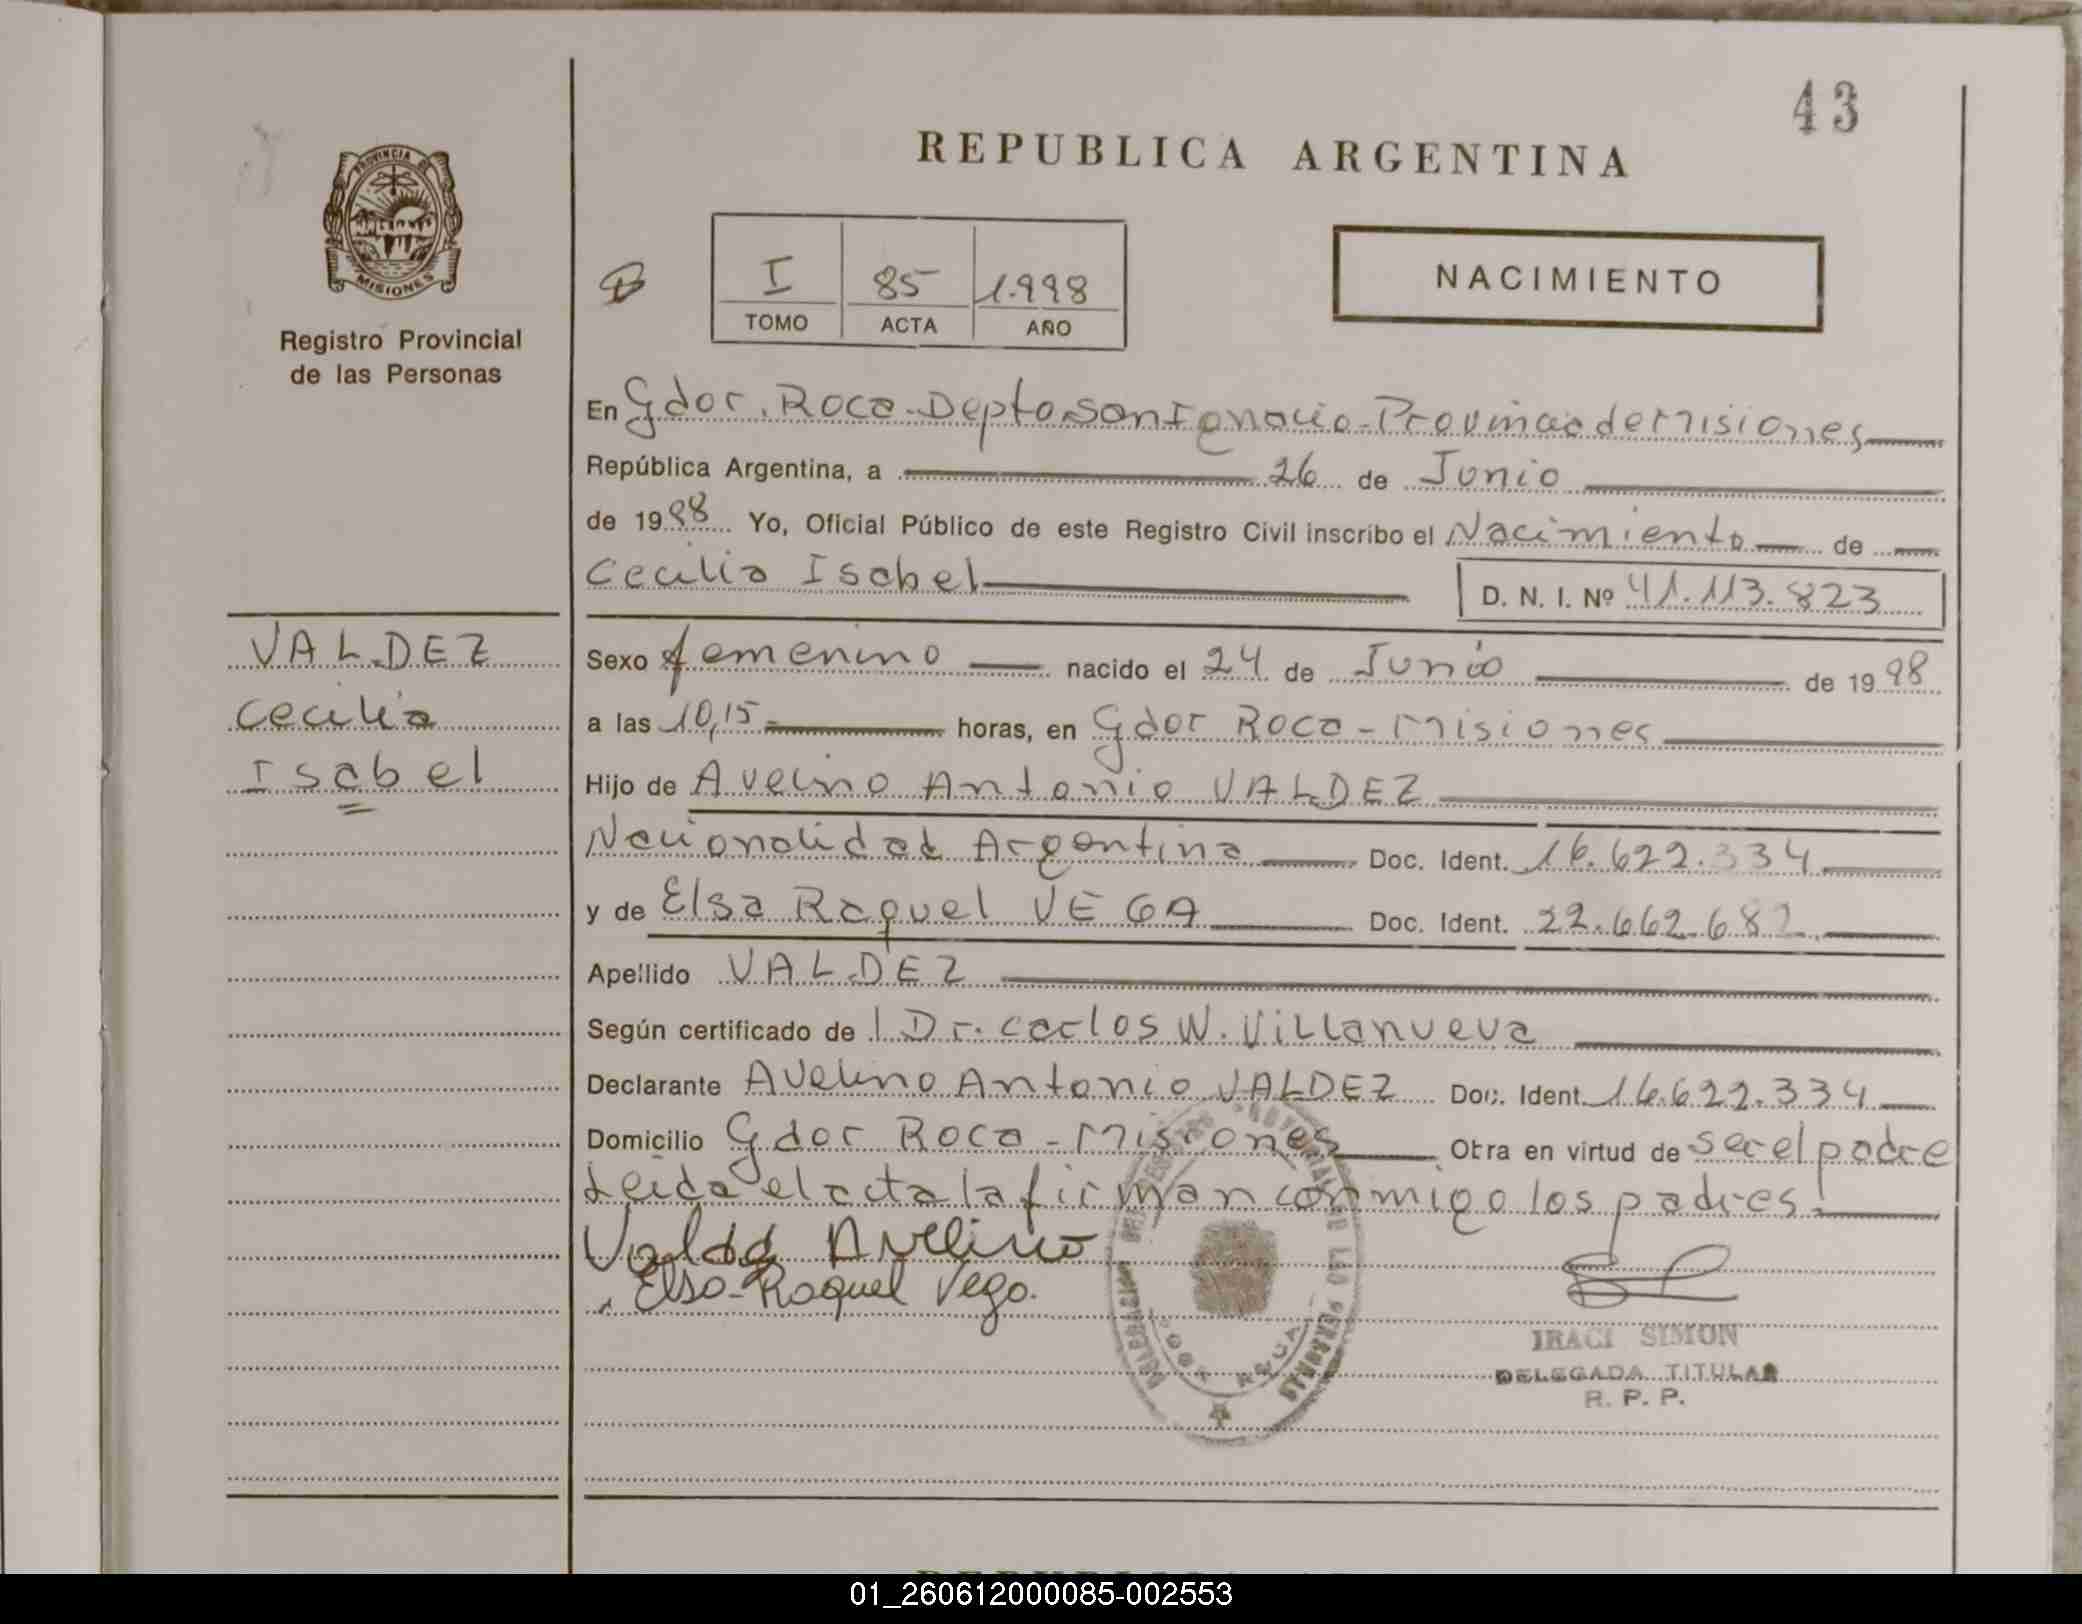 43
REPUBLICA ARGENTINA
PROVINCIA DE
MISIONES
Registro Provincial
de las Personas
I 85 1.998
TOMO ACTA AÑO
NACIMIENTO
En Gdor. Roca - Depto San Ignacio - Provincia de Misiones
República Argentina, a 26 de Junio
de 1998 Yo, Oficial Público de este Registro Civil inscribo el Nacimiento de
Cecilia Isabel
D. N. I. Nº 41.113.823
VALDEZ
Cecilia
Isabel
Sexo femenino nacido el 24 de Junio de 1998
a las 10,15 horas, en Gdor Roca - Misiones
Hijo de Avelino Antonio VALDEZ
Nacionalidad Argentina Doc. Ident. 16.622.334
y de Elsa Raquel VEGA Doc. Ident. 22.662.682
Apellido VALDEZ
Según certificado de l Dr. Carlos W. Villanueva
Declarante Avelino Antonio VALDEZ Doc. Ident. 16.622.334
Domicilio Gdor Roca - Misiones Otra en virtud de ser el padre
Leida el acta la firman conmigo los padres.
Valdez Avelino
Elsa Raquel Vega.
IRACI SIMON
DELEGADA TITULAR
R. P. P.
01_260612000085-002553